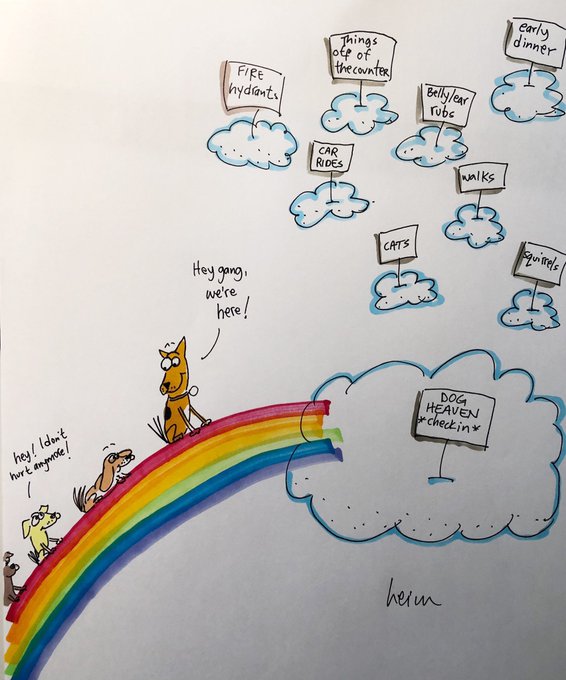 early
dinner
Things
off of
the counter
FIRE
hydrants
Belly/ear
rubs
CAR
RIDES
walks
CATS
squirrels
Hey gang,
we're
here!
DOG
HEAVEN
*check in*
hey! I don't
hurt anymore!
heim